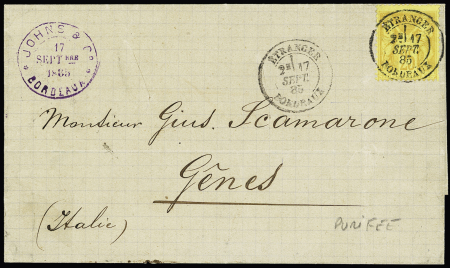 JOHNS & Co
17
SEPTBRE
1885
BORDEAUX
ÉTRANGER
1
2E/17
SEPT.
85
BORDEAUX
ÉTRANGER
1
2E/17
SEPT.
85
BORDEAUX
Monsieur Gius. Scamarone
Gênes
(Italie)
PURIFEE